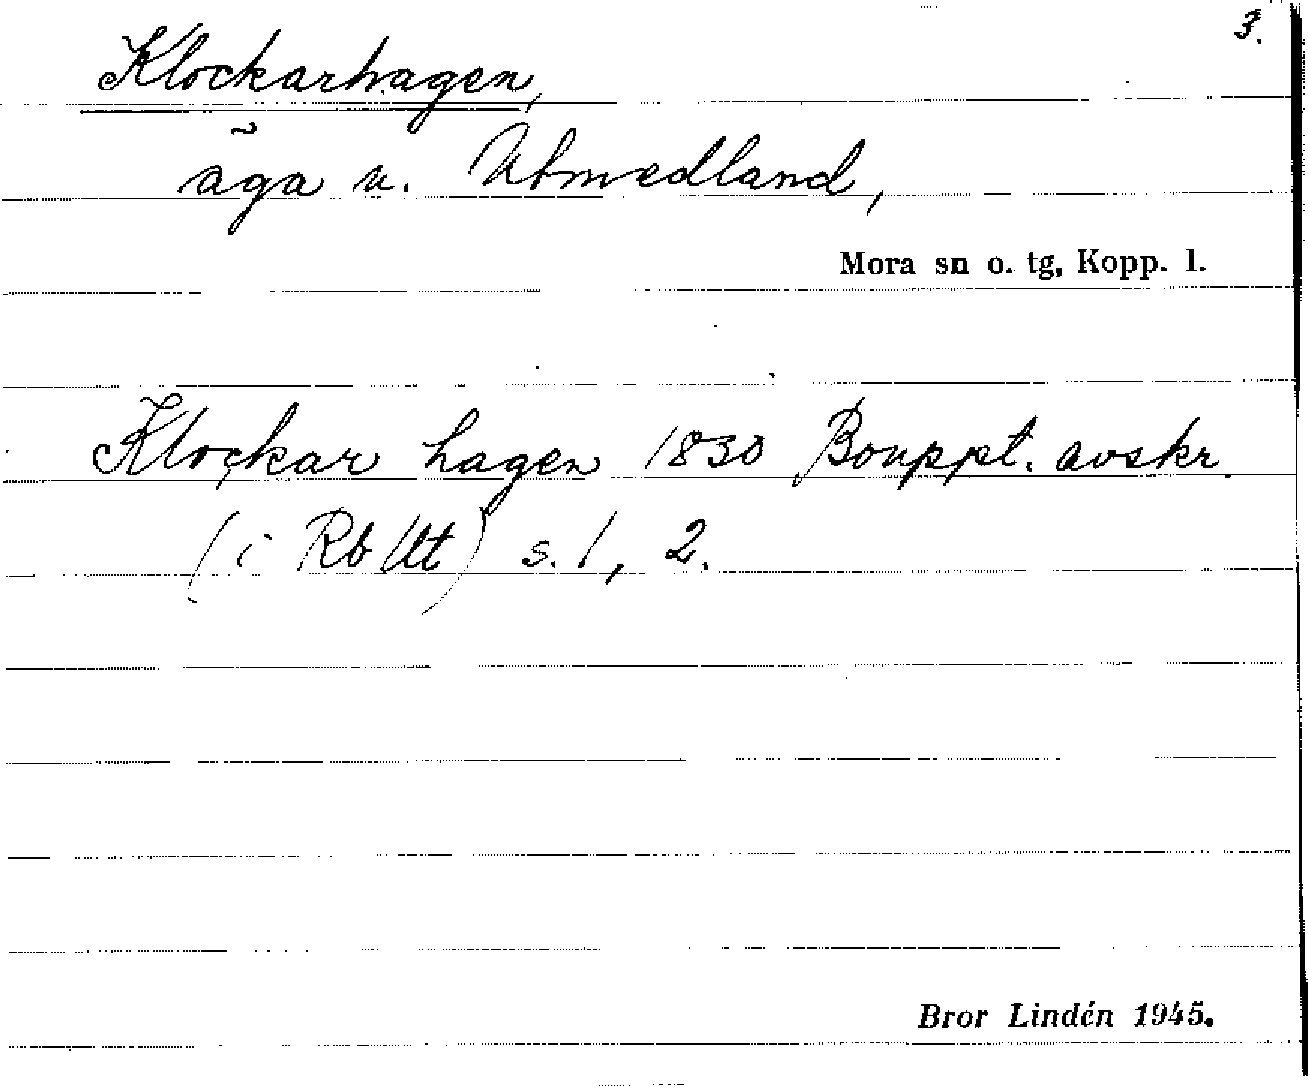 3.
Klockarhagen,
äga v. Utmedland,
Mora sn o. tg, Kopp. l.
Klockar hagen 1830 Bouppt. avskr.
(i Rb Ut) s. 1, 2.
Bror Lindén 1945.